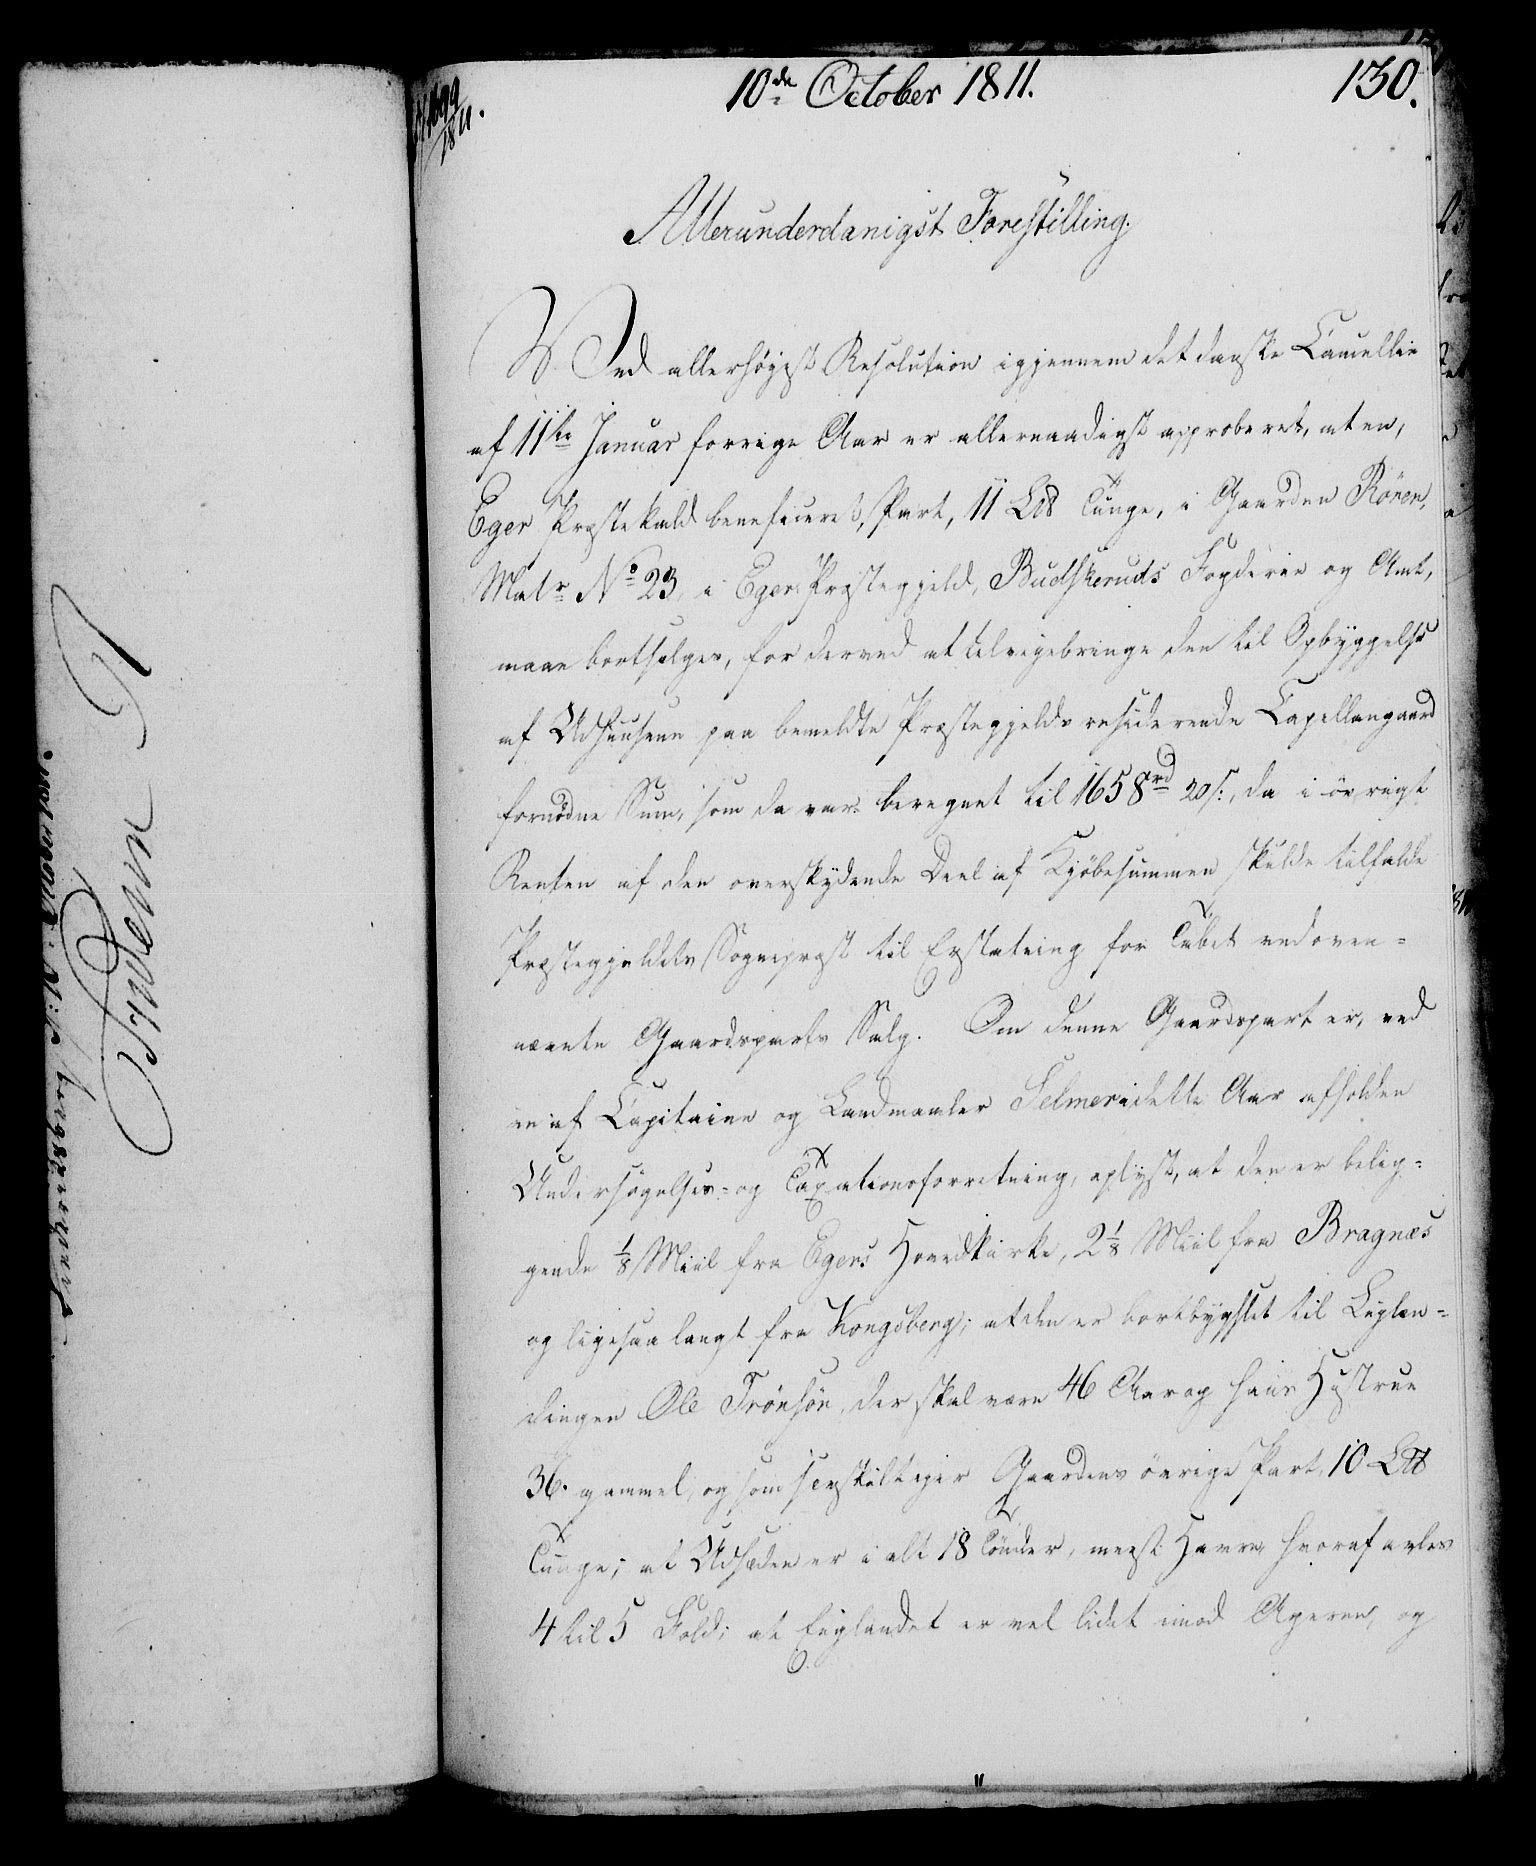 10de October 1811.
130.
1699/1811.
Allerunderdanigst Forestilling.
Ved allerhøyest Resolution igjennem det danske Cancellie
af 11te Januar forrige Aar er allernaadigst approberet, at en,
Eger Præstekald beneficeret, Part, 11 L℔ Tunge, i Gaarden Rören,
Matr No 23, i Eger Præstegjeld, Budskeruds Fogderie og Amt,
maae bortsælges, for derved at tilveiebringe den til Opbyggelse
af Udhuusene paa bemeldte Præstegjelds residerende Capellangaard
fornödne Sum, som da var beregnet til 1658rd 20s., da i övrigt
Renten af den overskydende Deel af Kjöbesummen skulde tilfalde
Præstegjeldets Sognepræst til Erstatning for Tabet ved oven=
nævnte Gaardsparts Salg. Om denne Gaardspart er, ved
en af Capitaine og Landmaaler Selmer i dette Aar afholden
Undersögelses= og Taxationsforretning, oplyst, at den er belig=
gende 1/8 Miil fra Egers Hovedkirke, 2 1/8 Miil fra Bragnæs
og ligesaa langt fra Kongsberg; at den er bortbygslet til Leylæn=
dingen Ole Trönsön, der skal være 46 Aar og hans Hustrue
36. gammel, og som særskilt ejer Gaardens övrige Part, 10 L℔
Tunge; at Udsæden er i alt 18 Tönder, meest Havre, hvoraf avles
4 til 5 Fold; at Englandet er vel lidet imod Ageren, og
Friderich R